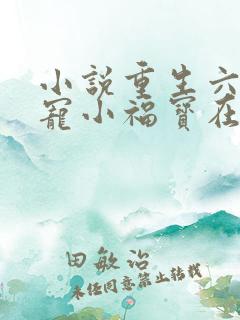 小說重生六
寵小福寶在
田敏治
未經同意禁止轉載